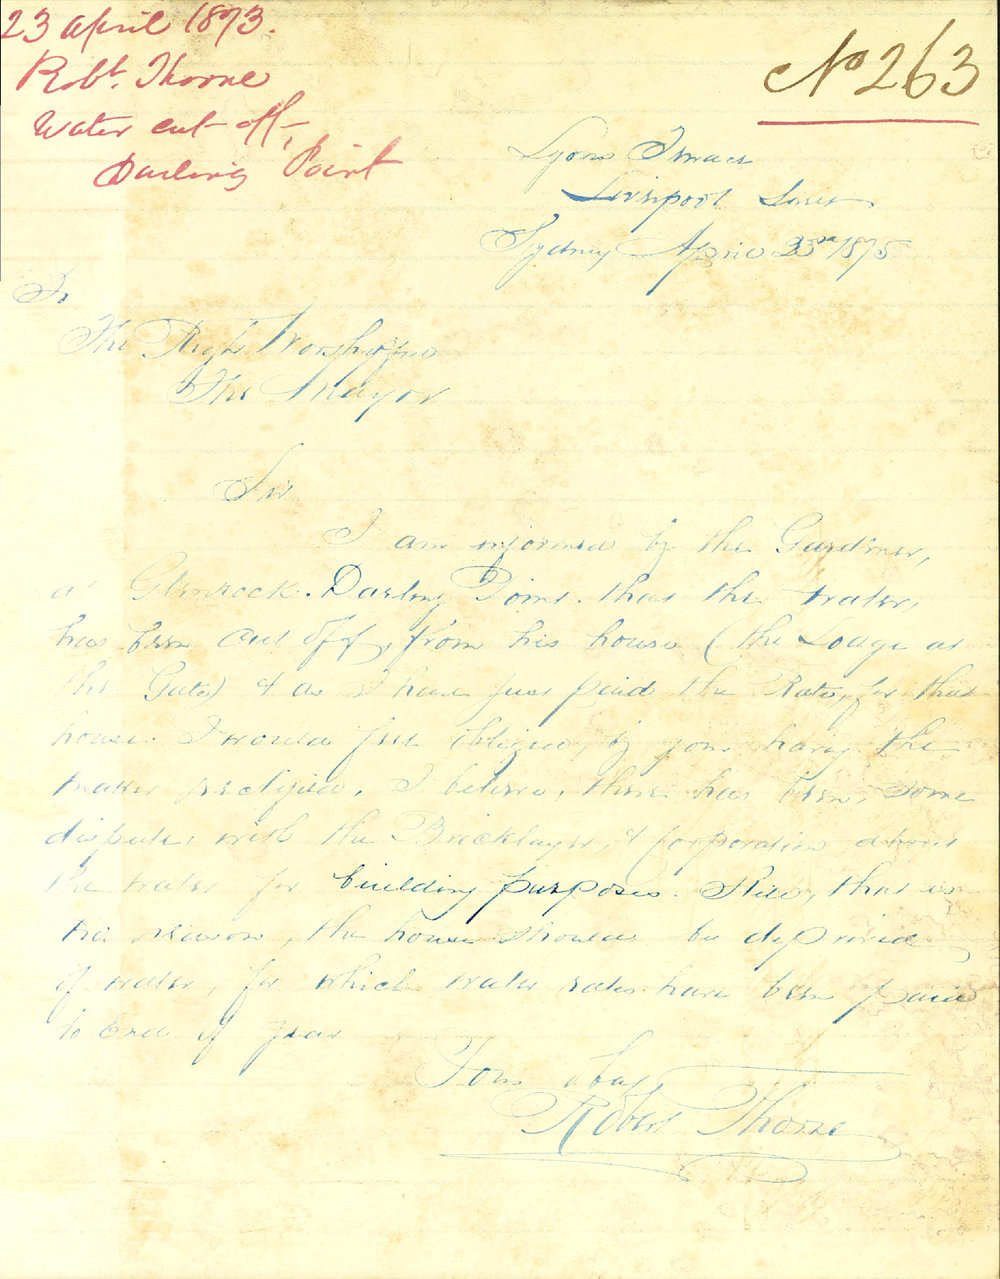 23 April 1873.
Robt. Thorne
Water cut off,
Darling Point
No 263
Lyons Terrace
Liverpool Street
Sydney April 23rd 1873
To
The Right Worshipful
The Mayor
Sir
I am informed by the Gardiner,
at Glenrock. Darling Point. that the water,
has been cut off, from his house (the Lodge at
the Gate) & as I have just paid the Rates, for that
house. I would feel obliged, by your havg. the
matter rectified. I believe, there has been, some
dispute, with the Bricklayer, & Corporation about
the water for building purposes. Still, that is
no reason, the house should be deprived
of water, for which water rates have been paid
to End of year
Yours obdy.
Robert Thorne